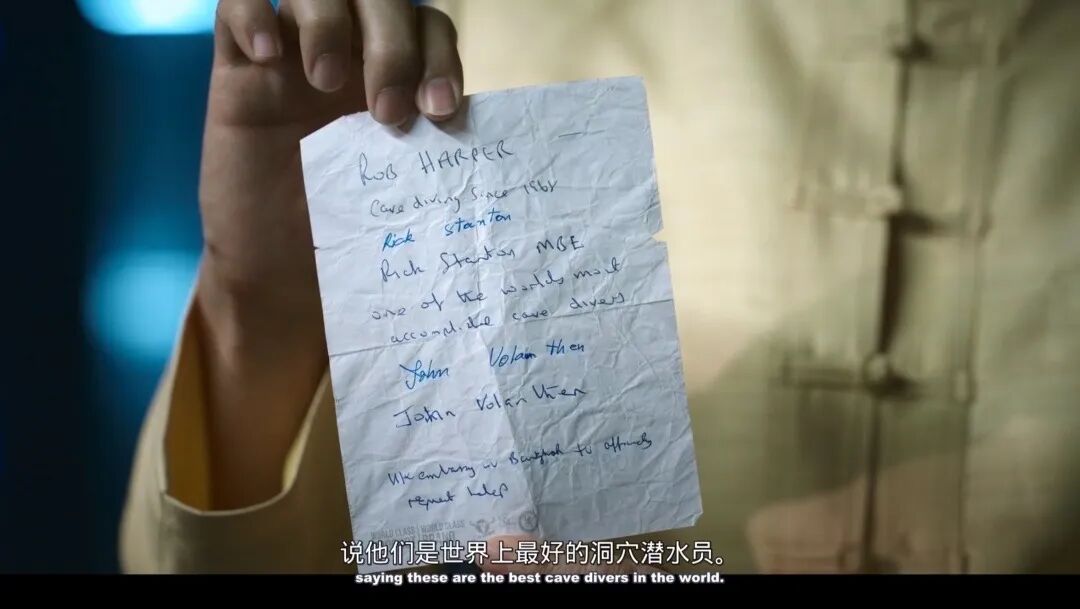 ROB HARPER
Cave diving Since 1968
Rick Stanton
Rick Stanton MBE
one of the worlds most
accomplishe cave divers
John Volanthen
John Volanthen
UK embassy in Bangkok to officially
request help
WORLD CLASS WORLD CLASS
说他们是世界上最好的洞穴潜水员。
saying these are the best cave divers in the world.